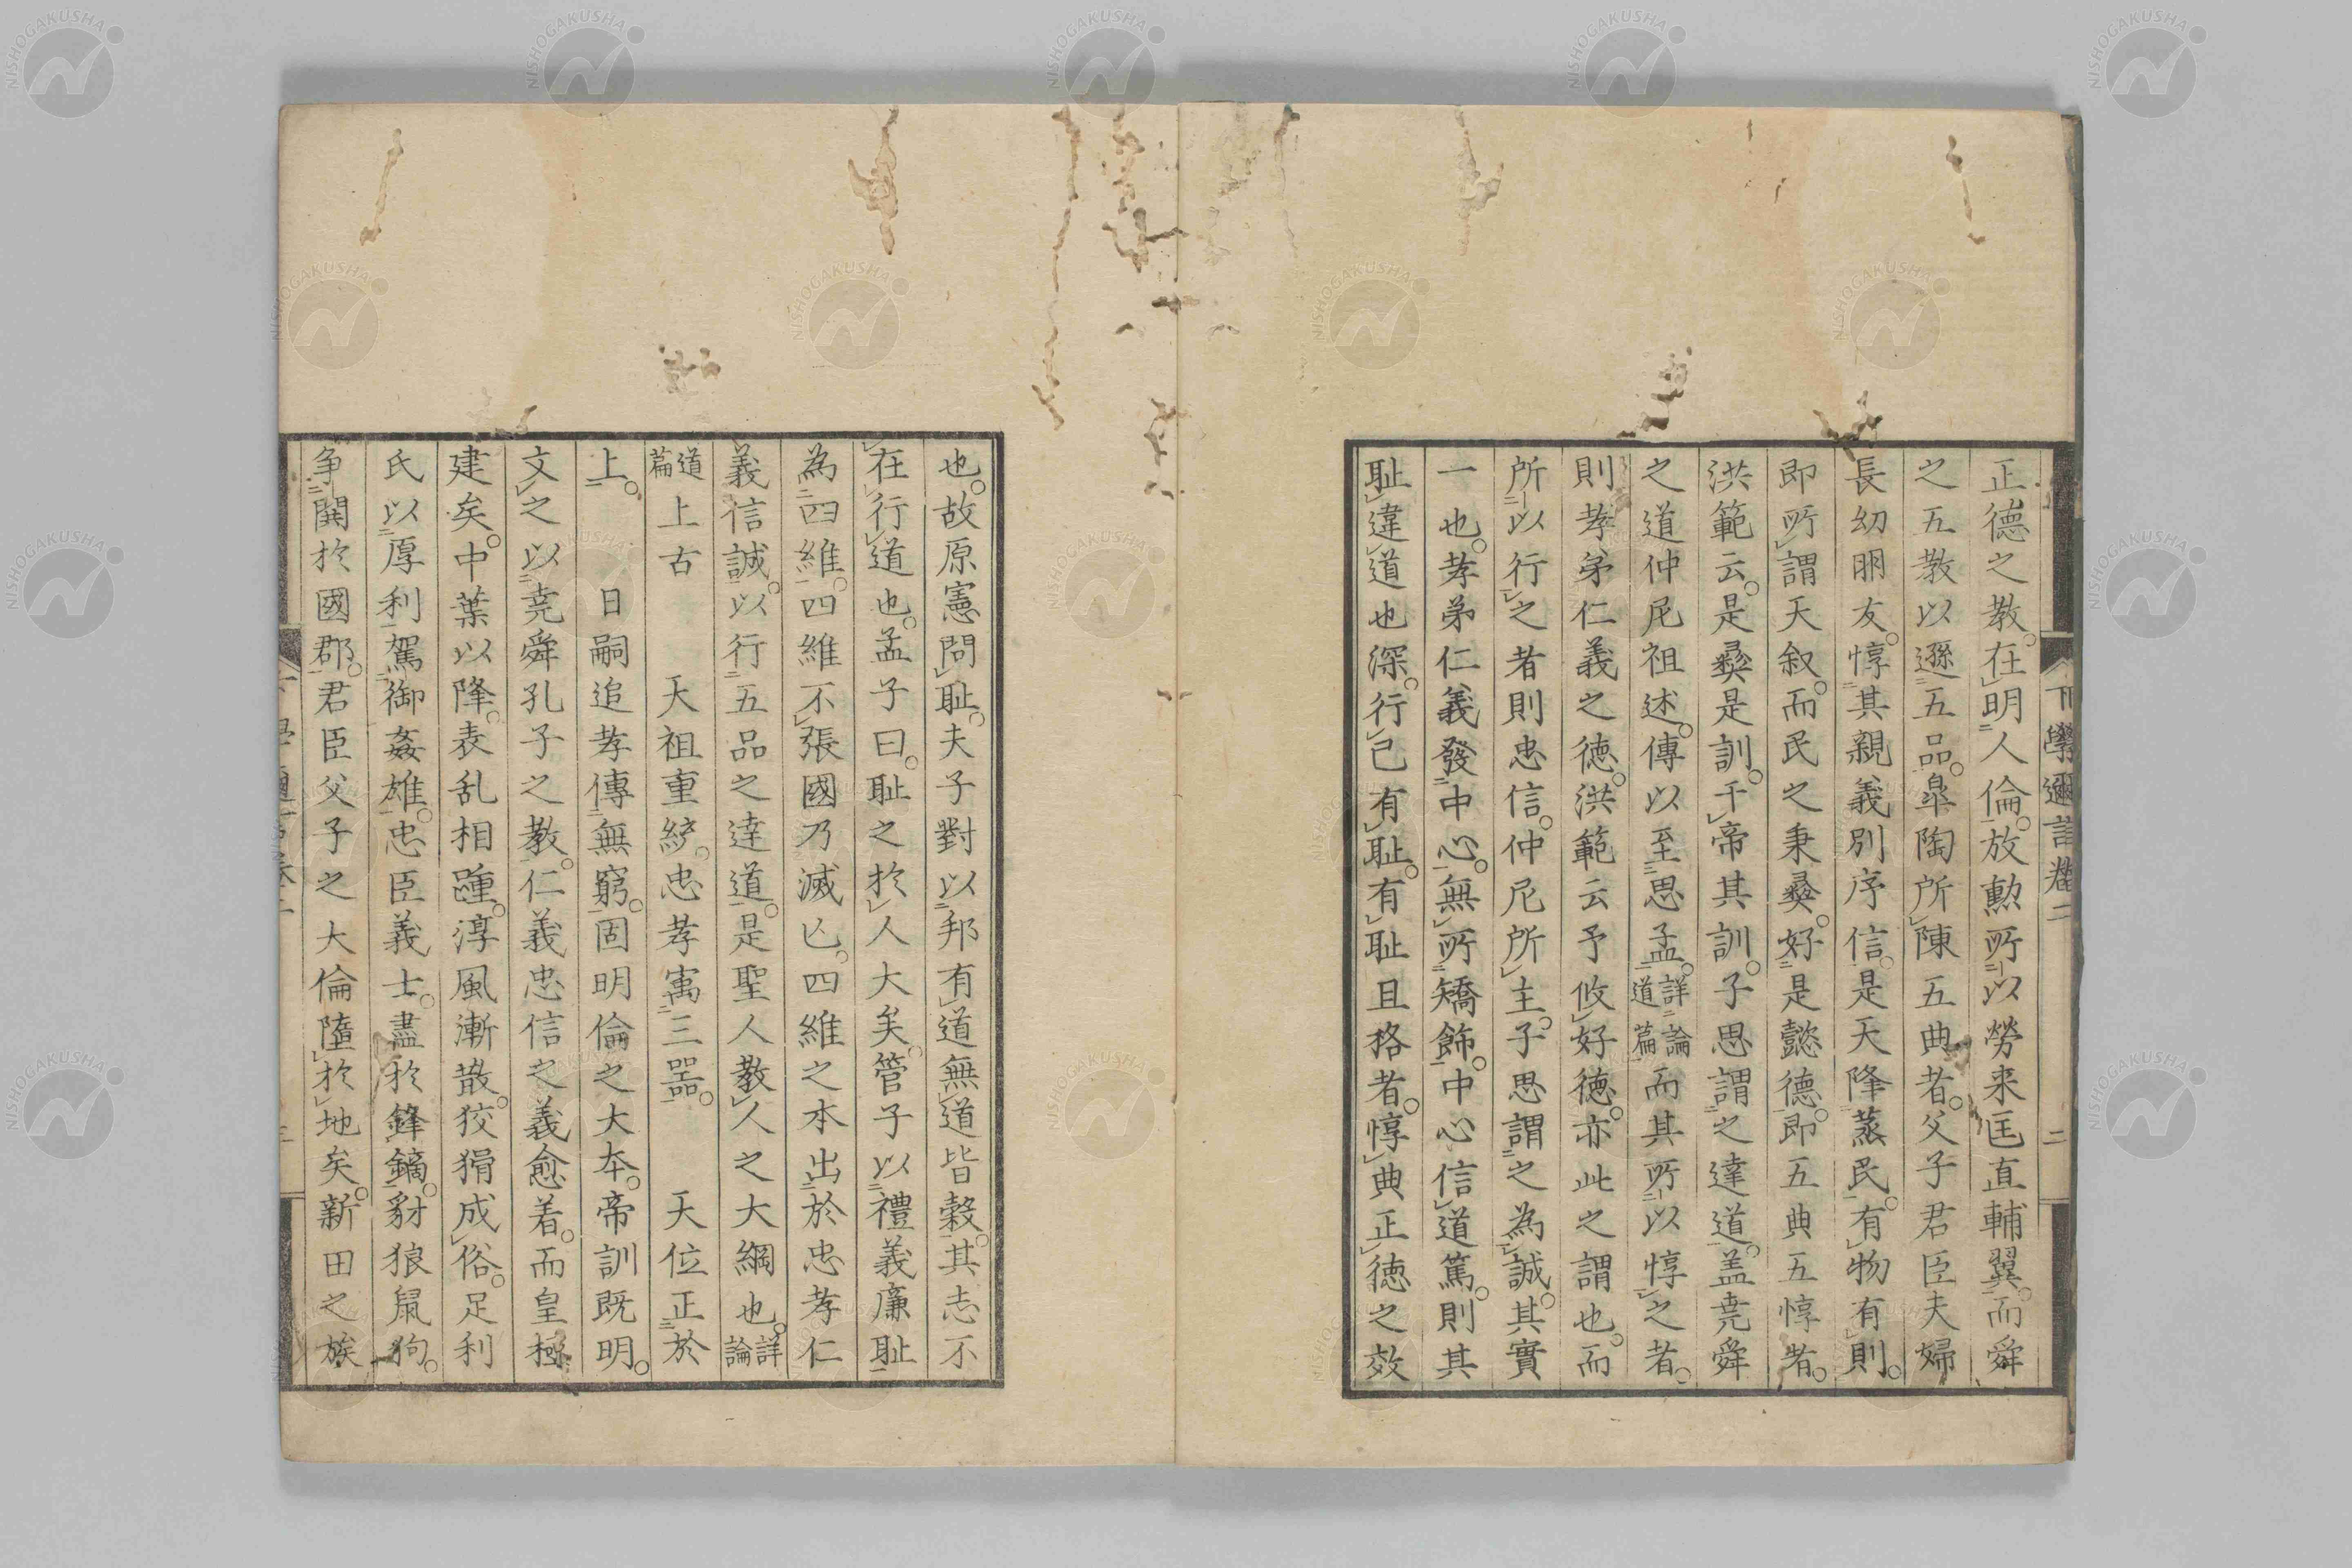 下學邇言卷二
二
正德之教。在明人倫。放勲所以勞来匡直輔翼。而舜
之五教以遜五品。皐陶所陳五典者。父子君臣夫婦
長幼朋友。惇其親義別序信。是天降蒸民。有物有則。
即所謂天叙。而民之秉彜。好是懿德。即五典五惇者。
洪範云。是彜是訓。于帝其訓。子思謂之達道。盖尭舜
之道仲尼祖述。傳以至思孟。詳論道篇而其所以惇之者。
則孝弟仁義之徳。洪範云予攸好徳。亦此之謂也。而
所以行之者則忠信。仲尼所主。子思謂之為誠。其實
一也。孝弟仁義發中心。無所矯飾。中心信道篤。則其
耻違道也深。行己有耻。有耻且格者。惇典正徳之效
也。故原憲問耻。夫子對以邦有道無道皆穀。其志不
在行道也。孟子曰。耻之於人大矣。管子以禮義廉耻
為四維。四維不張國乃滅亾。四維之本出於忠孝仁
義信誠。以行五品之達道。是聖人教人之大綱也。詳論
道篇上古天祖重統。忠孝寓三器。天位正於
上。日嗣追孝傳無窮。固明倫之大本。帝訓既明。
文之以尭舜孔子之教。仁義忠信之義愈着。而皇極
建矣。中葉以降。衰乱相踵。淳風漸散。狡猾成俗。足利
氏以厚利駕御姦雄。忠臣義士。盡於鋒鏑。豺狼鼠狗。
争鬩於國郡。君臣父子之大倫墮於地矣。新田之族
NISHOGAKUSHA